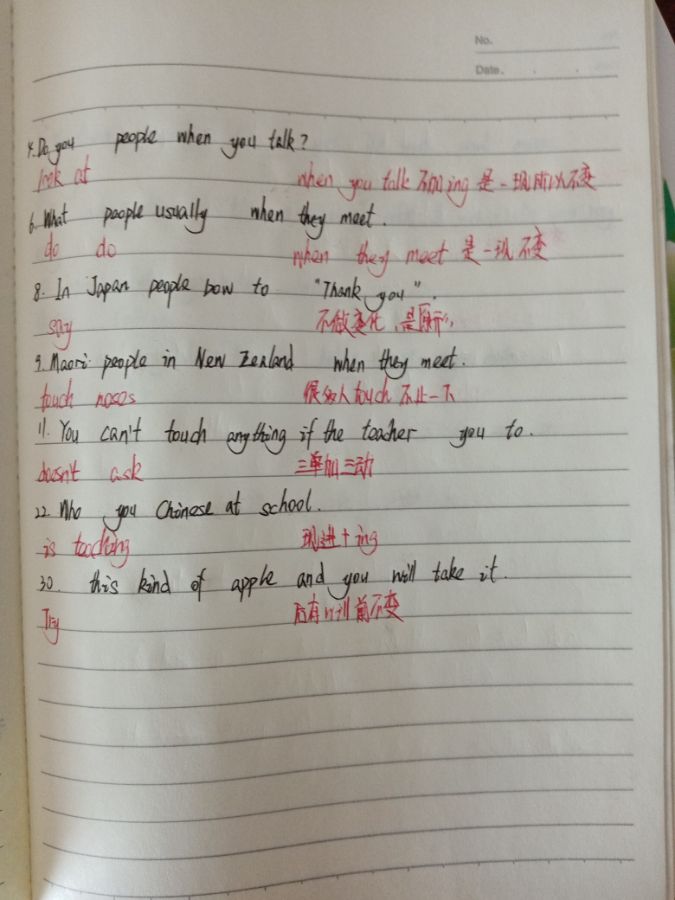 No.
Date.
4. Do you people when you talk?
look at when you talk 不加ing 是一现所以不变
6. What people usually when they meet.
do do when they meet 是一现不变
8. In Japan people bow to "Thank you".
say 不做变化,是原形,
9. Maori people in New Zealand when they meet.
touch noses 很多人touch 不止一下
11. You can't touch anything if the teacher you to.
doesn't ask 三单加三动
22. Who you Chinese at school.
is teaching 现进+ing
30. this kind of apple and you will take it.
Try 后有will前不变